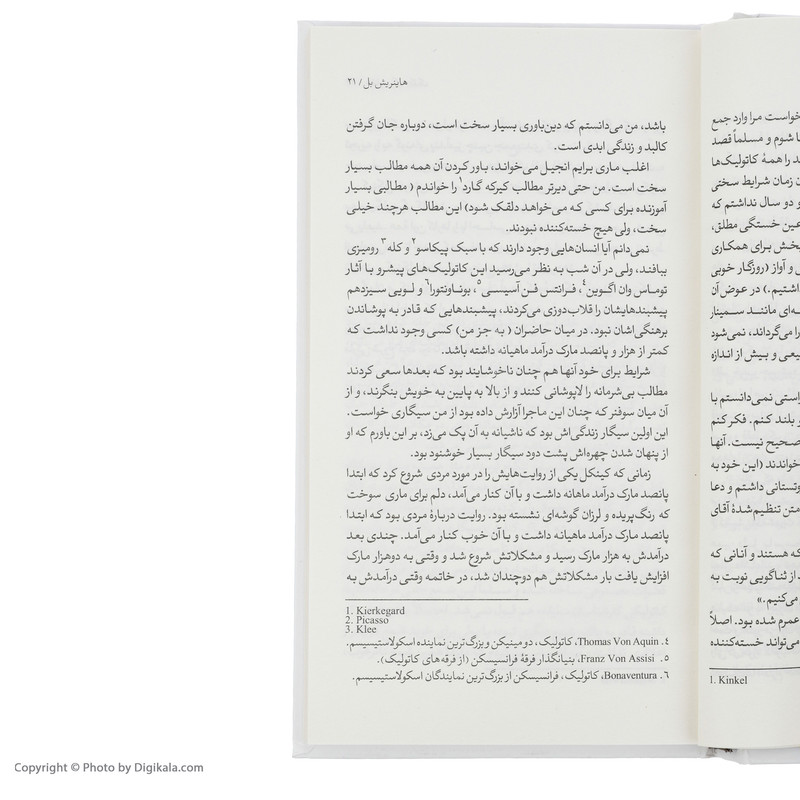 خواست مرا وارد جمع
ا شوم و مسلماً قصد
د را همهٔ کاتولیک‌ها
ن زمان شرایط سختی
و دو سال نداشتم که
عین خستگی مطلق،
بخش برای همکاری
و آواز (روزگار خوبی
داشتیم.) در عوض آن
ه‌ای مانند سمینار
را می‌گرداند، نمی‌شود
یعی و بیش از اندازه
راستی نمی‌دانستم با
و بلند کنم. فکر کنم
صحیح نیست. آنها
خواندند (این خود به
وتستانی داشتم و دعا
متن تنظیم‌شدهٔ آقای
که هستند و آنانی که
د از ثناگویی نوبت به
می‌کنیم.»
عمرم شده بود. اصلاً
می‌تواند خسته‌کننده
1. Kinkel
هاینریش بل / ۲۱
باشد، من می‌دانستم که دین‌باوری بسیار سخت است، دوباره جان گرفتن
کالبد و زندگی ابدی است.
اغلب ماری برایم انجیل می‌خواند، باور کردن آن همه مطالب بسیار
سخت است. من حتی دیرتر مطالب کیرکه گارد۱ را خواندم ( مطالبی بسیار
آموزنده برای کسی که می‌خواهد دلقک شود) این مطالب هرچند خیلی
سخت، ولی هیچ خسته‌کننده نبودند.
نمی‌دانم آیا انسان‌هایی وجود دارند که با سبک پیکاسو۲ و کله۳ رومیزی
ببافند، ولی در آن شب به نظر می‌رسید این کاتولیک‌های پیشرو با آثار
توماس وان اگوین۴، فرانتس فن آسیسی۵، بوناونتورا۶ و لویی سیزدهم
پیشبندهایشان را قلاب‌دوزی می‌کردند، پیشبندهایی که قادر به پوشاندن
برهنگی‌اشان نبود. در میان حاضران ( به جز من) کسی وجود نداشت که
کمتر از هزار و پانصد مارک درآمد ماهیانه داشته باشد.
شرایط برای خود آنها هم چنان ناخوشایند بود که بعدها سعی کردند
مطالب بی‌شرمانه را لاپوشانی کنند و از بالا به پایین به خویش بنگرند، و از
آن میان سوفنر که چنان این ماجرا آزارش داده بود از من سیگاری خواست.
این اولین سیگار زندگی‌اش بود که ناشیانه به آن پک می‌زد، بر این باورم که او
از پنهان شدن چهره‌اش پشت دود سیگار بسیار خوشنود بود.
زمانی که کینکل یکی از روایت‌هایش را در مورد مردی شروع کرد که ابتدا
پانصد مارک درآمد ماهانه داشت و با آن کنار می‌آمد، دلم برای ماری سوخت
که رنگ‌پریده و لرزان گوشه‌ای نشسته بود. روایت دربارهٔ مردی بود که ابتدا
پانصد مارک درآمد ماهیانه داشت و با آن خوب کنار می‌آمد. چندی بعد
درآمدش به هزار مارک رسید و مشکلاتش شروع شد و وقتی به دوهزار مارک
افزایش یافت بار مشکلاتش هم دوچندان شد، در خاتمه وقتی درآمدش به
1. Kierkegard
2. Picasso
3. Klee
۴. Thomas Von Aquin، کاتولیک، دومینیکن و بزرگ‌ترین نماینده اسکولاستیسیسم.
۵. Franz Von Assisi، بنیانگذار فرقهٔ فرانسیسکن (از فرقه‌های کاتولیک).
۶. Bonaventura، کاتولیک، فرانسیسکن از بزرگ‌ترین نمایندگان اسکولاستیسیسم.
Copyright © Photo by Digikala.com